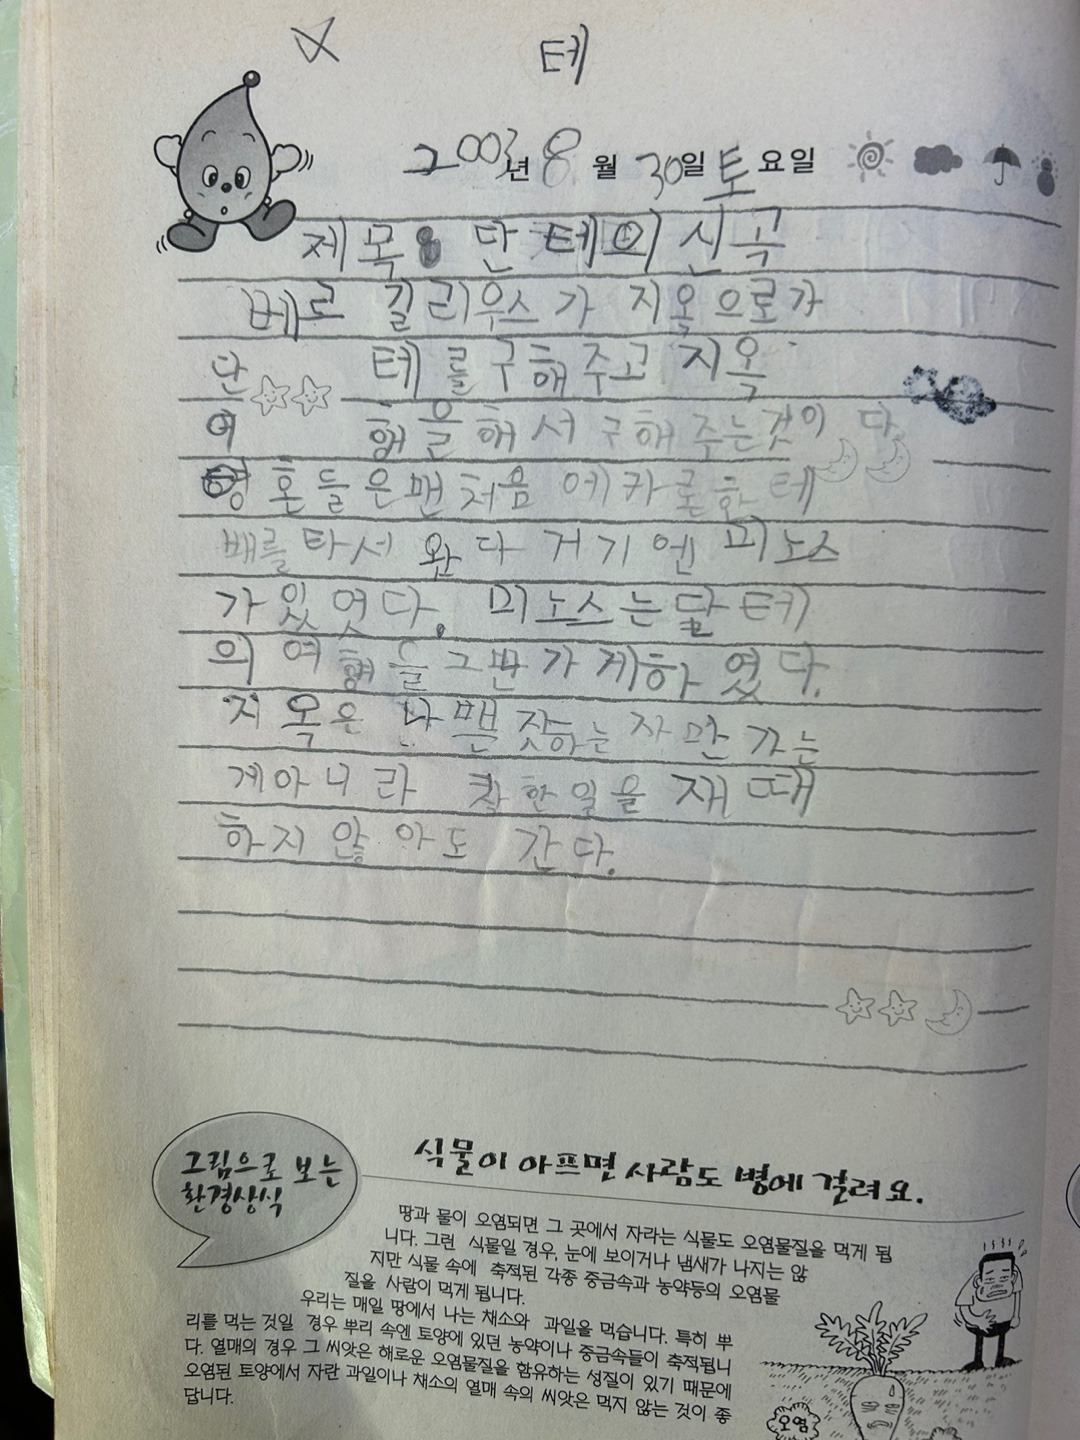 테
2003년 8월 30일 토요일
제목: 단테의신곡
베르길리우스가 지옥으로가
단테를구해주고 지옥
여행을해서구해주는것이다
영혼들은맨처음에카론한테
배를타서 왔다 거기엔 미노스
가있엇다. 미노스는달테
의여행을그만가게하였다.
지옥은 나쁜짓하는자만가는
게아니라 착한일을재때
하지않아도 간다.
그림으로 보는
환경상식
식물이 아프면 사람도 병에 걸려요.
땅과 물이 오염되면 그 곳에서 자라는 식물도 오염물질을 먹게 됩
니다. 그런 식물일 경우, 눈에 보이거나 냄새가 나지는 않
지만 식물 속에 축적된 각종 중금속과 농약등의 오염물
질을 사람이 먹게 됩니다.
우리는 매일 땅에서 나는 채소와 과일을 먹습니다. 특히 뿌
리를 먹는 것일 경우 뿌리 속엔 토양에 있던 농약이나 중금속들이 축적됩니
다. 열매의 경우 그 씨앗은 해로운 오염물질을 함유하는 성질이 있기 때문에
오염된 토양에서 자란 과일이나 채소의 열매 속의 씨앗은 먹지 않는 것이 좋
답니다.
오염